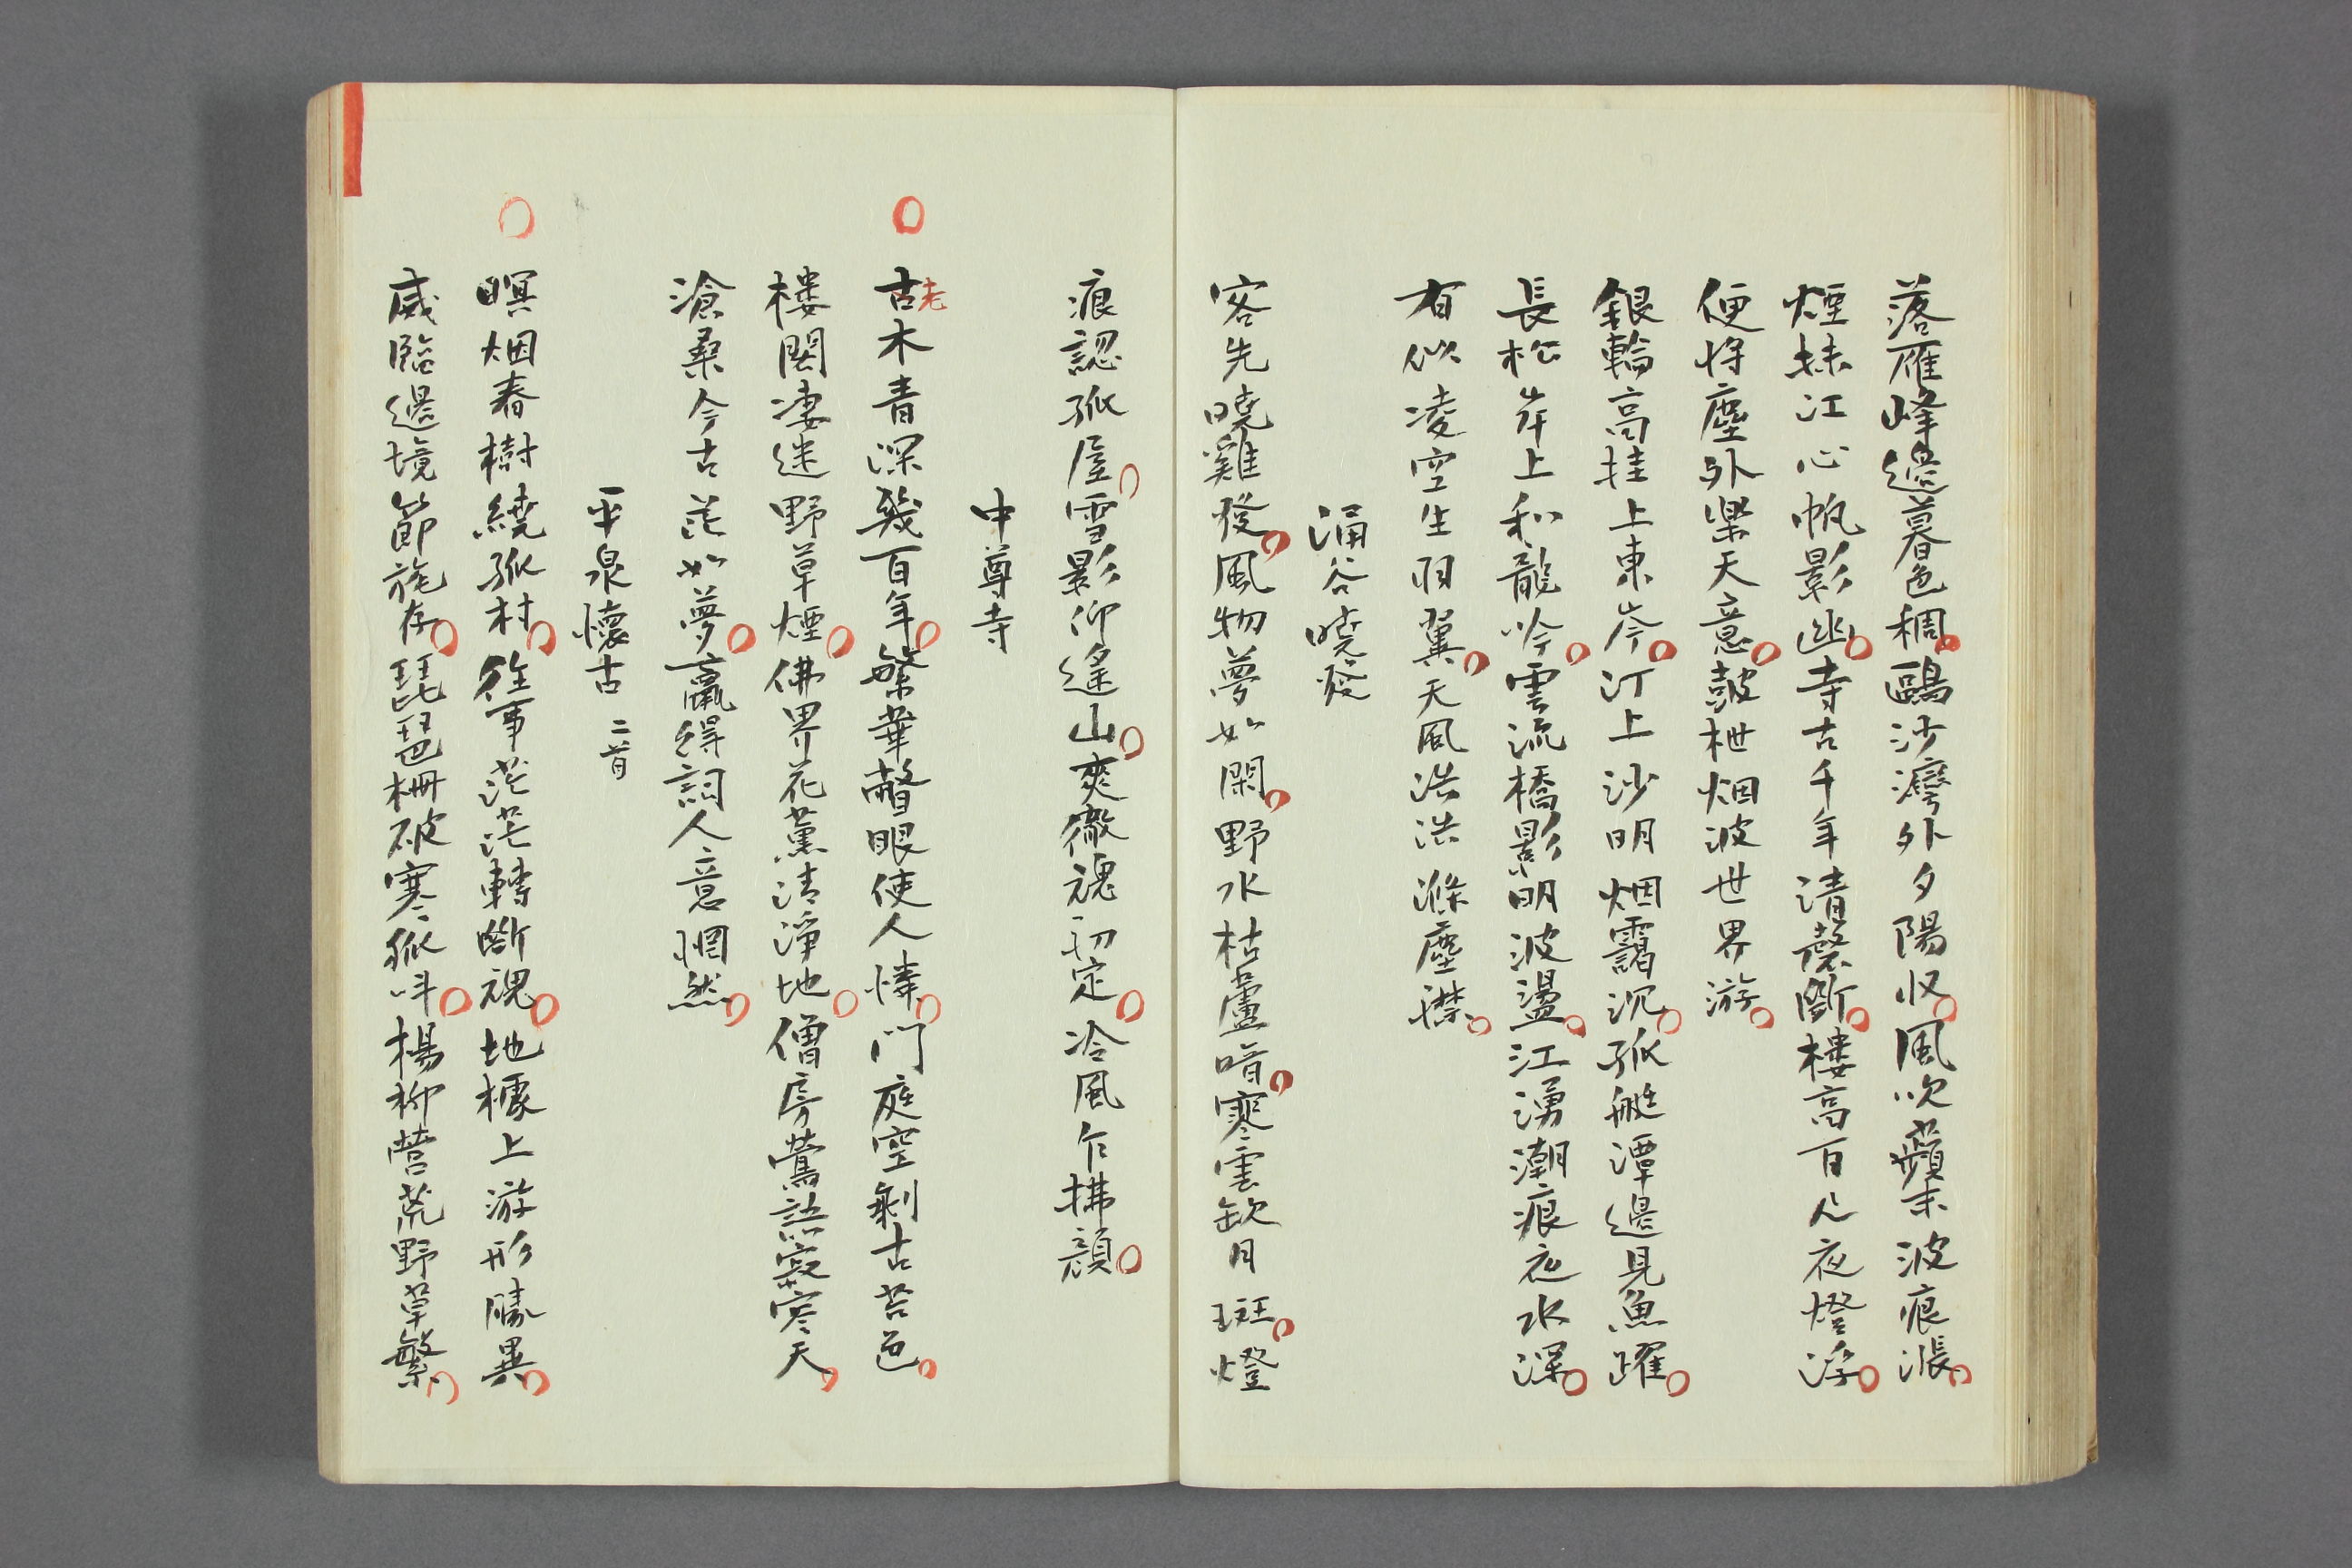 落雁峰邊暮色稠鷗沙灣外夕陽収風吹蘋末波痕漲
煙抹江心帆影幽寺古千年清磬斷樓高百尺夜燈浮
便将塵外樂天意鼓枻烟波世界游
銀輪高挂上東岑汀上沙明烟靄沉孤艇潭邊見魚躍
長松岸上和龍吟雲流橋影明波盪江湧潮痕夜水深
有似凌空生羽翼天風浩浩滌塵襟
涌谷曉發
客先曉雞發風物夢如閑野水枯蘆暗寒雲缺月斑燈
痕認孤屋雪影仰遙山爽徹魂初定冷風乍拂顔
中尊寺
古老木青深幾百年繁華瞥眼使人憐門庭空剩古苔色
樓閣凄迷野草煙佛界花薫清淨地僧房鶯語寂寥天
滄桑今古茫如夢贏得詞人意惘然
平泉懷古 二首
暝烟春樹繞孤村徃事茫茫轉斷魂地據上游形勝異
威臨邊境節旄存琵琶柵破寒狐呌楊柳營荒野草繁